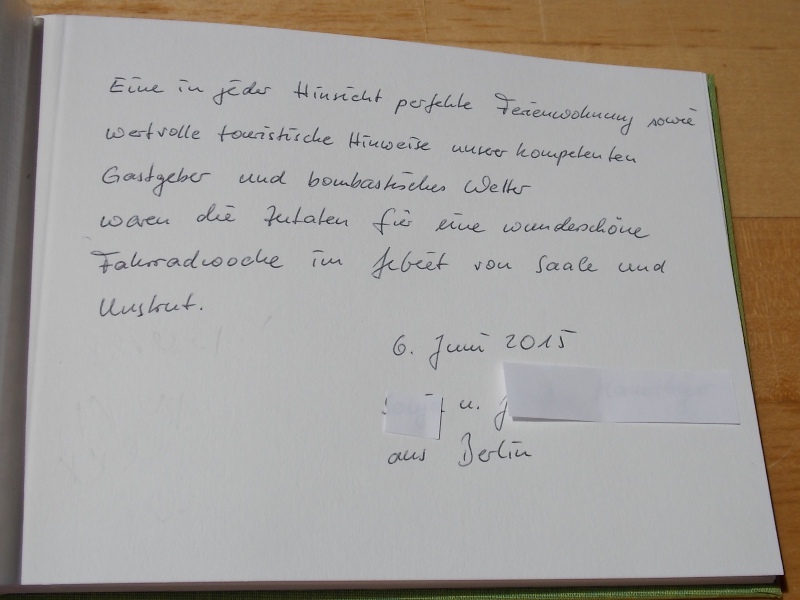 Eine in jeder Hinsicht perfekte Ferienwohnung sowie
wertvolle touristische Hinweise unserer kompetenten
Gastgeber und bombastisches Wetter
waren die Zutaten für eine wunderschöne
Fahrradwoche im Gebiet von Saale und
Unstrut.
6. Juni 2015
u. J
aus Berlin